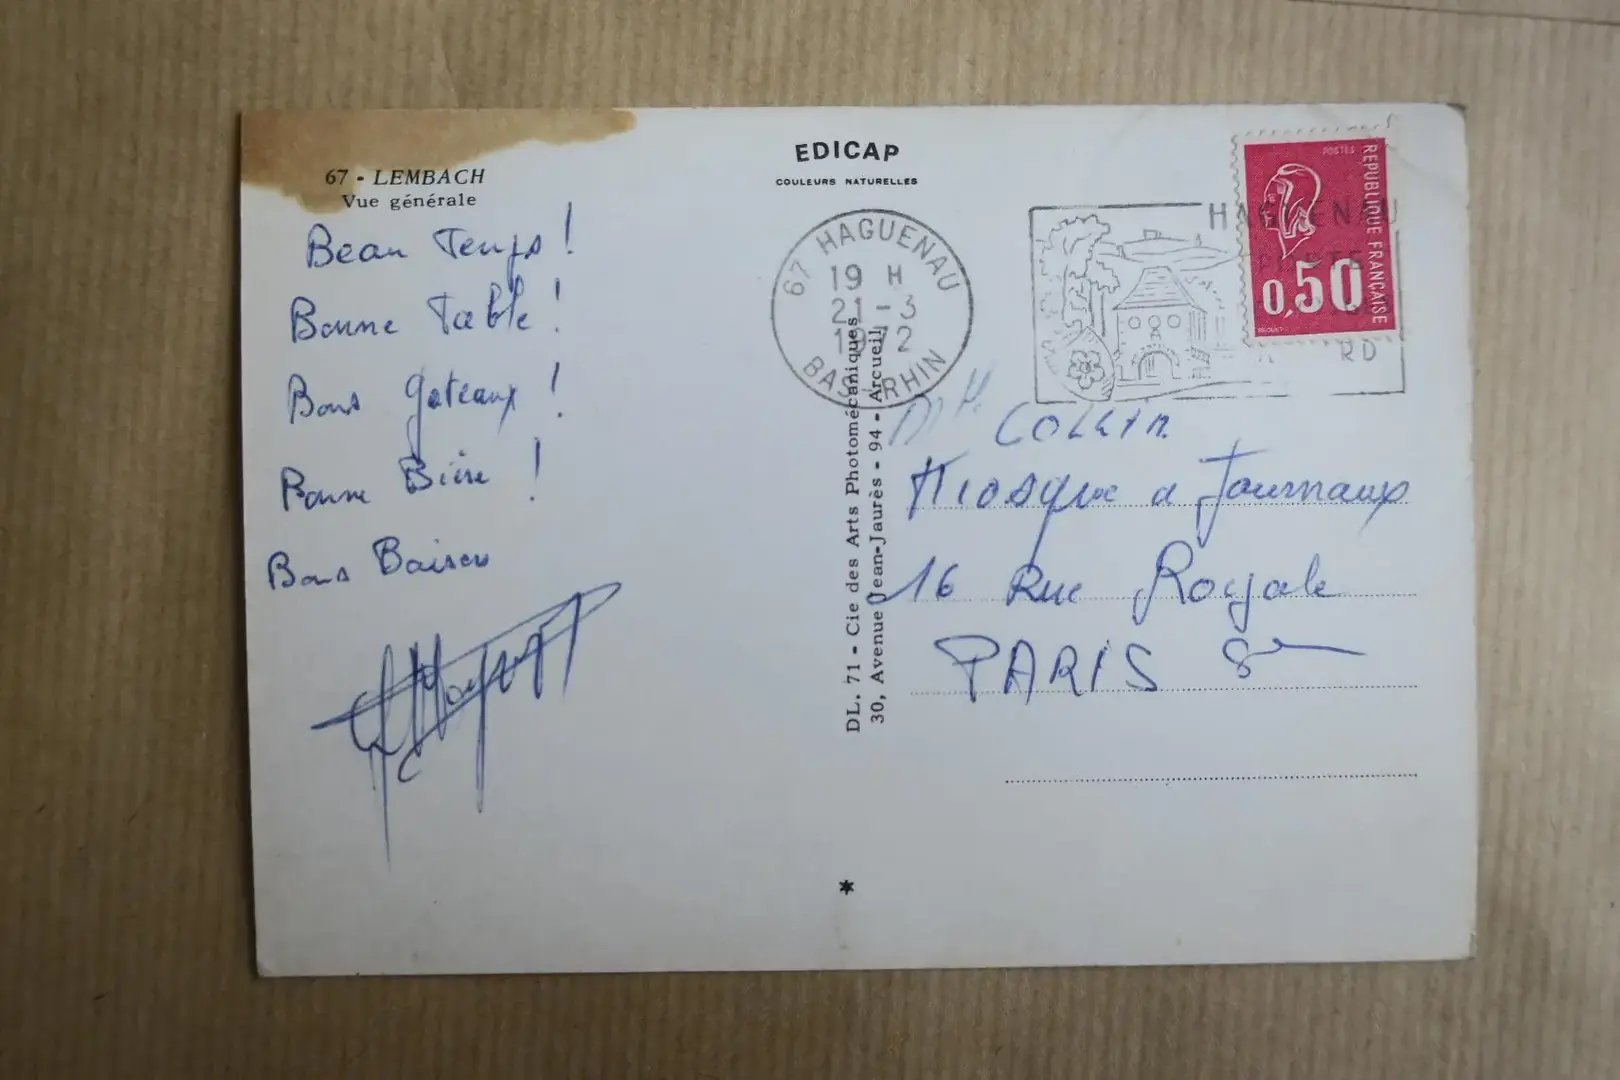 67 - LEMBACH
Vue générale
Beau Temps !
Bonne Table !
Bons gateaux !
Bonne Bière !
Bons Baisers
EDICAP
COULEURS NATURELLES
67 HAGUENAU
19 H
21-3
1972
BAS-RHIN
DL. 71 - Cie des Arts Photomécaniques
30, Avenue Jean-Jaurès - 94 - Arcueil
HAGUENAU
PORTE
RD
POSTES
REPUBLIQUE FRANÇAISE
0,50
COLLIN
Kiosque a Journaux
16 Rue Royale
PARIS 8